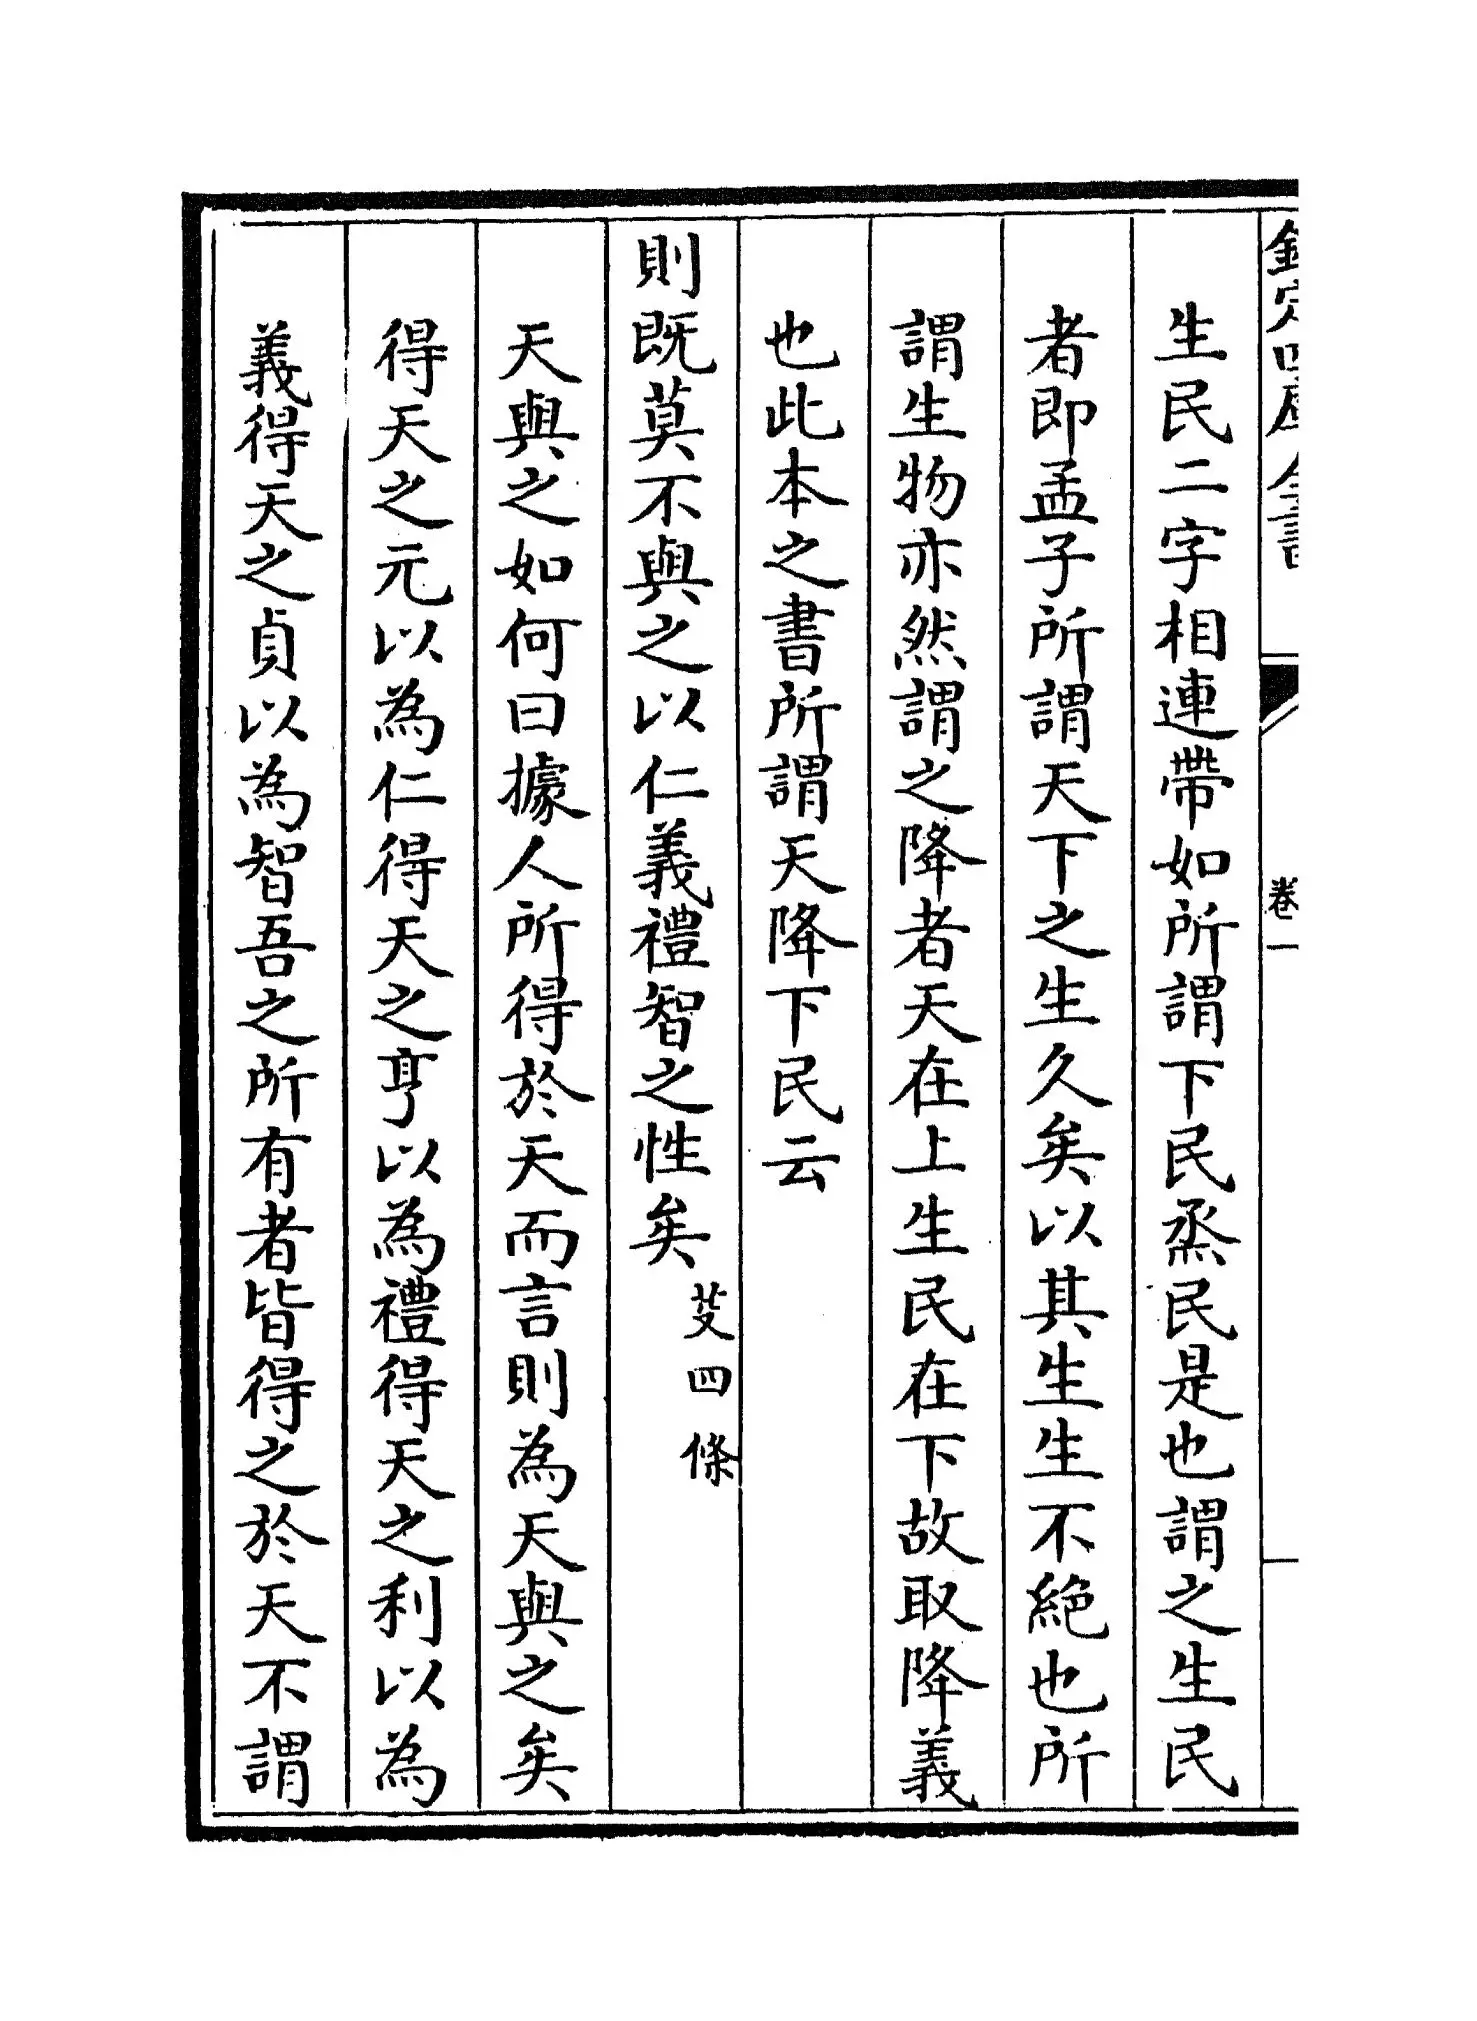 欽定四庫全書
卷一
生民二字相連帶如所謂下民烝民是也謂之生民
者即孟子所謂天下之生久矣以其生生不絕也所
謂生物亦然謂之降者天在上生民在下故取降義
也此本之書所謂天降下民云
則既莫不與之以仁義禮智之性矣
芟四條
天與之如何曰據人所得於天而言則為天與之矣
得天之元以為仁得天之亨以為禮得天之利以為
義得天之貞以為智吾之所有者皆得之於天不謂